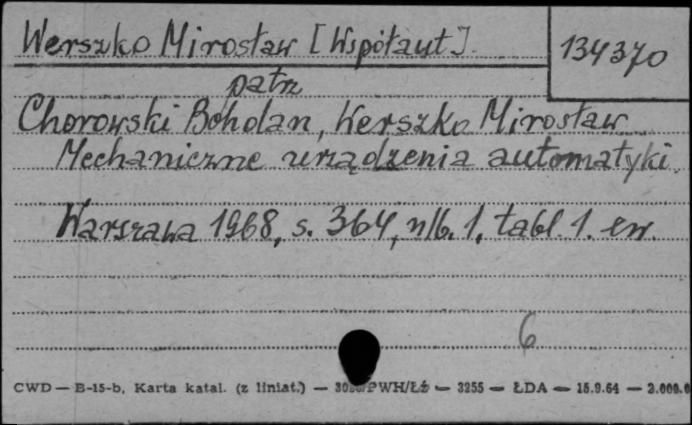 Werszko Mirosław [Współaut].
134370
patrz
Chorowski Bohdan, Werszko Mirosław
Mechaniczne urządzenia automatyki.
Warszawa 1968, s. 364, nlb. 1, tabl. 1. err.
6
CWD — B-15-b, Karta katal. (z liniat.) — PWH/Łź — 3255 — ŁDA — 15.9.64 — 2.000.0